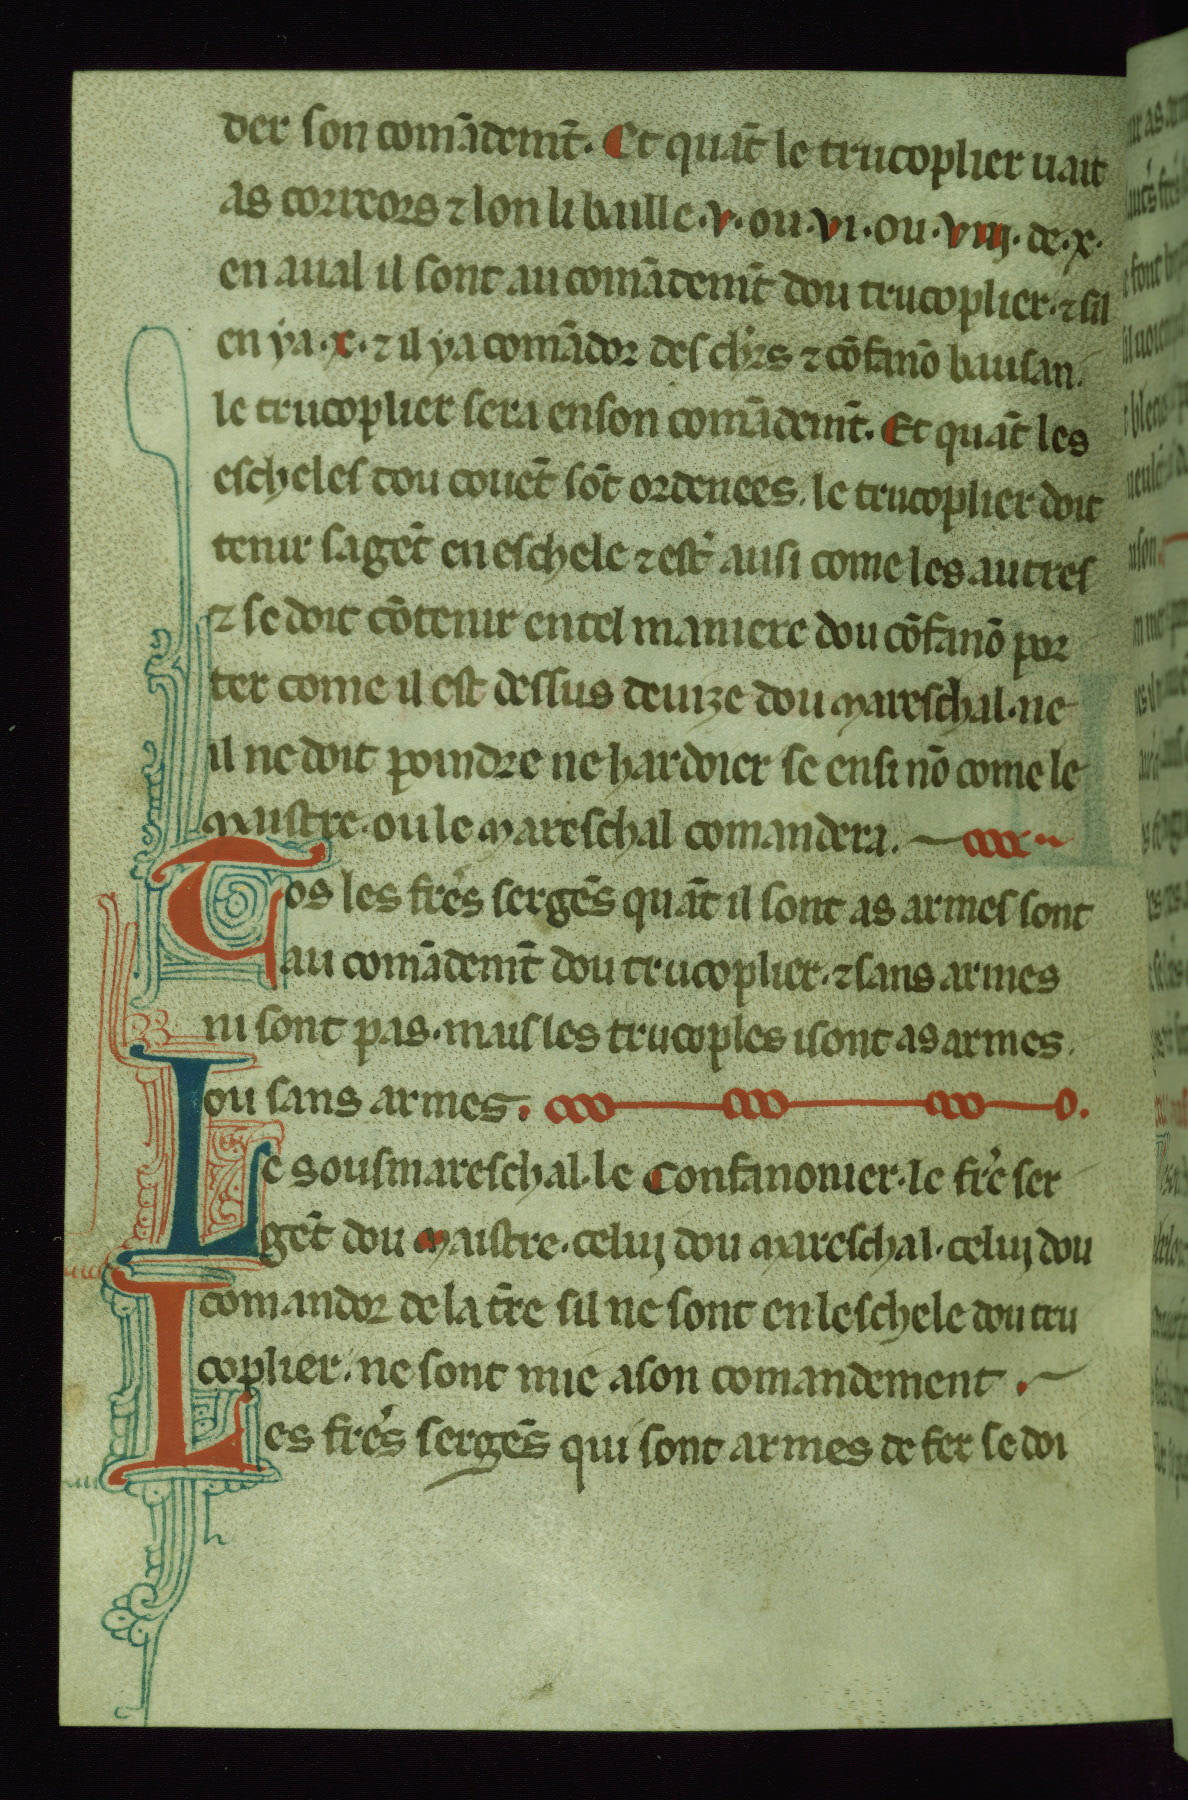 der son comādemt̄. Et quāt le trucoplier uait
as correors ⁊ lon li baille .v. ou .vi. ou .viii. de .x.
en aual il sont au comādemt̄ dou trucoplier. ⁊ sil
en ẏa .x. ⁊ il ya comādor des chr̄s ⁊ cōfanō bausan.
le trucoplier sera en son comādemt̄. Et quāt les
escheles dou couēt sōt ordenees. le trucoplier doit
tenir sa gēt en eschele ⁊ est̄ ausi come les autres
⁊ se doit cōtenir en tel maniere dou cōfanō por
ter come il est dessus deuize dou mareschal. ne
il ne doit poindre ne hardoier se ensi nō come le
maistre. ou le mareschal comandera.
Tos les fres̄ sergēs quāt il sont as armes sont
au comādemt̄ dou trucoplier. ⁊ sans armes
ni sont pas. mais les trucoples i sont as armes.
ou sans armes.
Le sousmareschal. le Confanonier. le frē ser
gēt dou Maistre. celuj dou mareschal. celuj dou
comandor de la tr̄e sil ne sont en leschele dou tru
coplier. ne sont mie a son comandement.
Les fres̄ sergēs qui sont armes de fer se doi